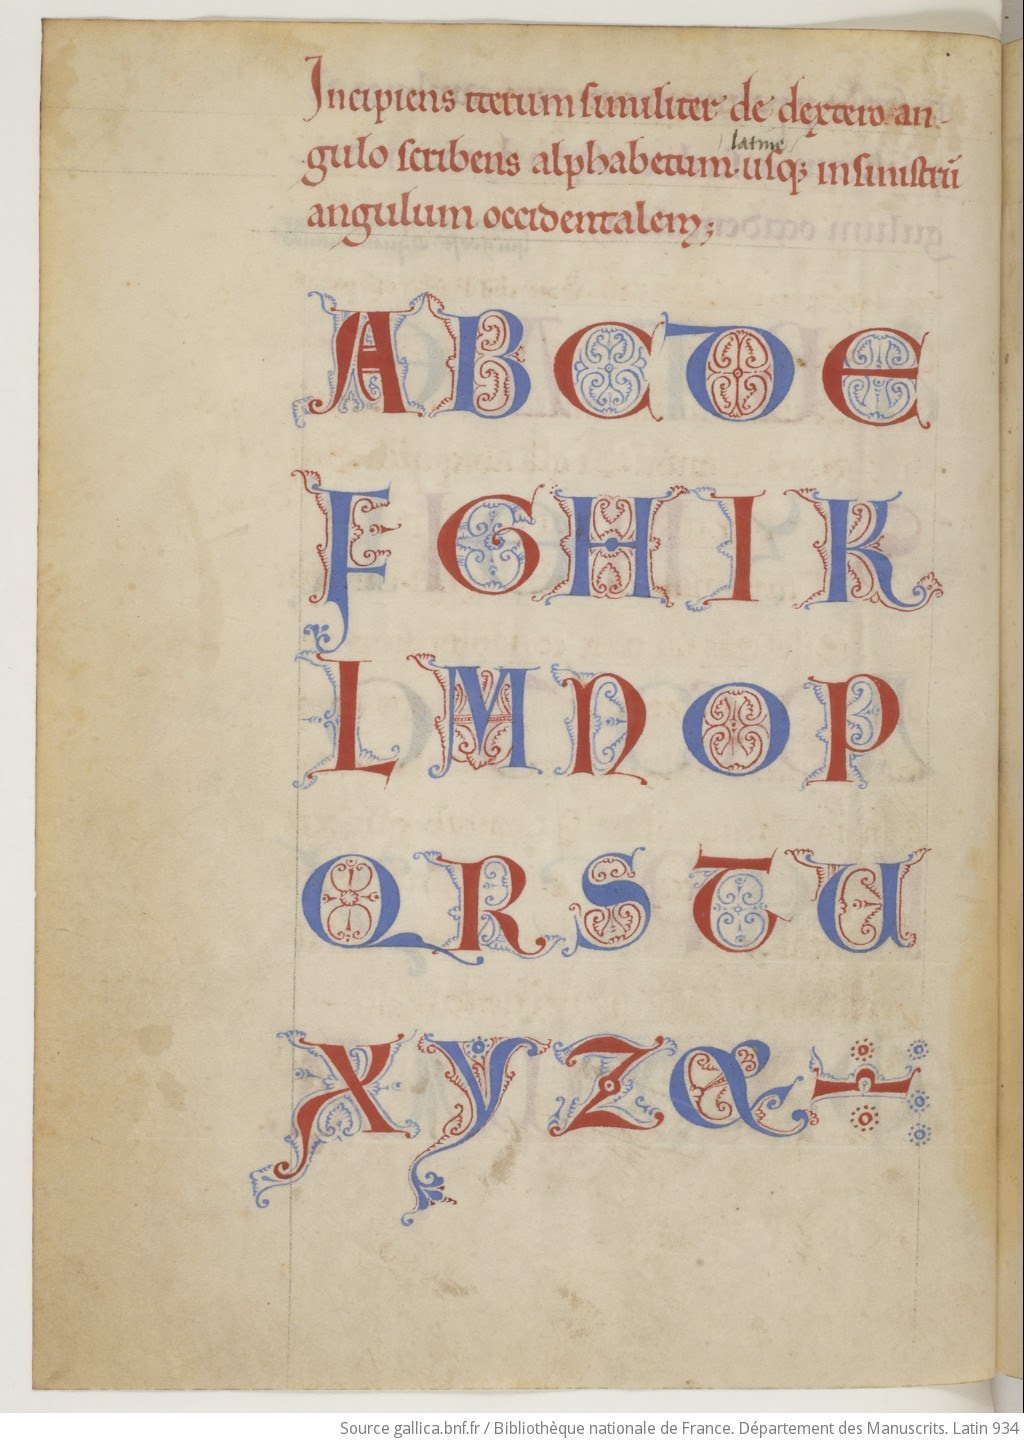 Incipiens iterum similiter de dextero an-
gulo scribens alphabetum latinū usq; in sinistrū
angulum occidentalem;
A B C D E
F G H I K
L M N O P
Q R S T U
X Y Z &
Source gallica.bnf.fr / Bibliothèque nationale de France. Département des Manuscrits. Latin 934